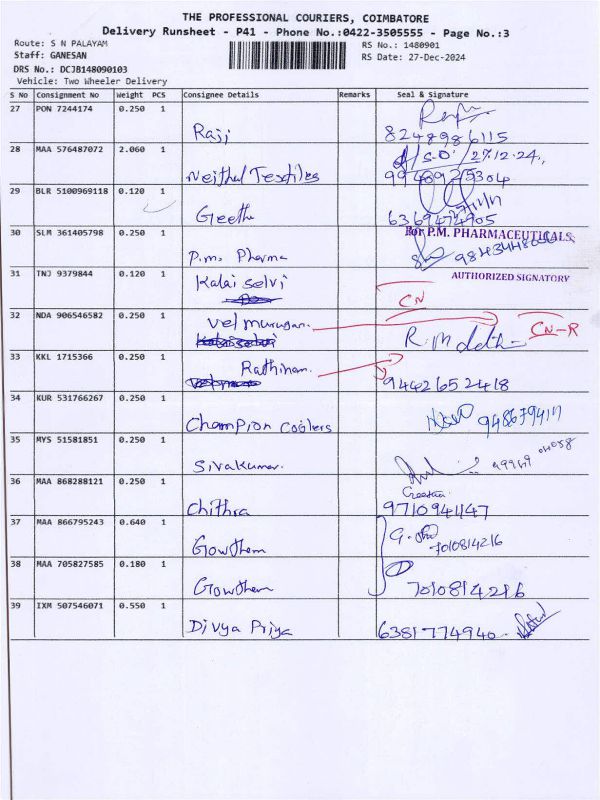 THE PROFESSIONAL COURIERS, COIMBATORE
Delivery Runsheet - P41 - Phone No.:0422-3505555 - Page No.:3
Route: S N PALAYAM
RS No.: 1480901
Staff: GANESAN
RS Date: 27-Dec-2024
DRS No.: DCJB148090103
Vehicle: Two Wheeler Delivery
S No Consignment No Weight PCS Consignee Details Remarks Seal & Signature
27 PON 7244174 0.250 1
Raji
8248986115
28 MAA 576487072 2.060 1
S.D. / 27.12.24.
Neithal Textiles
9940925304
29 BLR 5100969118 0.120 1
Geetha
6369474905
30 SLM 361405798 0.250 1
For P.M. PHARMACEUTICALS,
P.M. Pharma
31 TNJ 9379844 0.120 1
AUTHORIZED SIGNATORY
Kalai selvi
CN
32 NDA 906546582 0.250 1
Vel murugan.
CN-R
33 KKL 1715366 0.250 1
Rathinam.
9442652418
34 KUR 531766267 0.250 1
Champion coolers
35 MYS 51581851 0.250 1
Sivakumar.
36 MAA 868288121 0.250 1
Chithra
9710944147
37 MAA 866795243 0.640 1
Gowthem
7010814216
38 MAA 705827585 0.180 1
Gowthem
7010814216
39 IXM 507546071 0.550 1
Divya Priya
6381774940